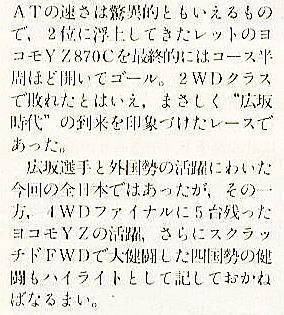 ATの速さは驚異的ともいえるもの
で，2位に浮上してきたレットのヨ
コモYZ870Cを最終的にはコース半
周ほど開いてゴール。2WDクラス
で敗れたとはいえ，まさしく“広坂
時代”の到来を印象づけたレースで
あった。
広坂選手と外国勢の活躍にわいた
今回の全日本ではあったが，その一
方，4WDファイナルに5台残った
ヨコモYZの活躍，さらにスクラッ
チドFWDで大健闘した四国勢の健
闘もハイライトとして記しておかね
ばなるまい。